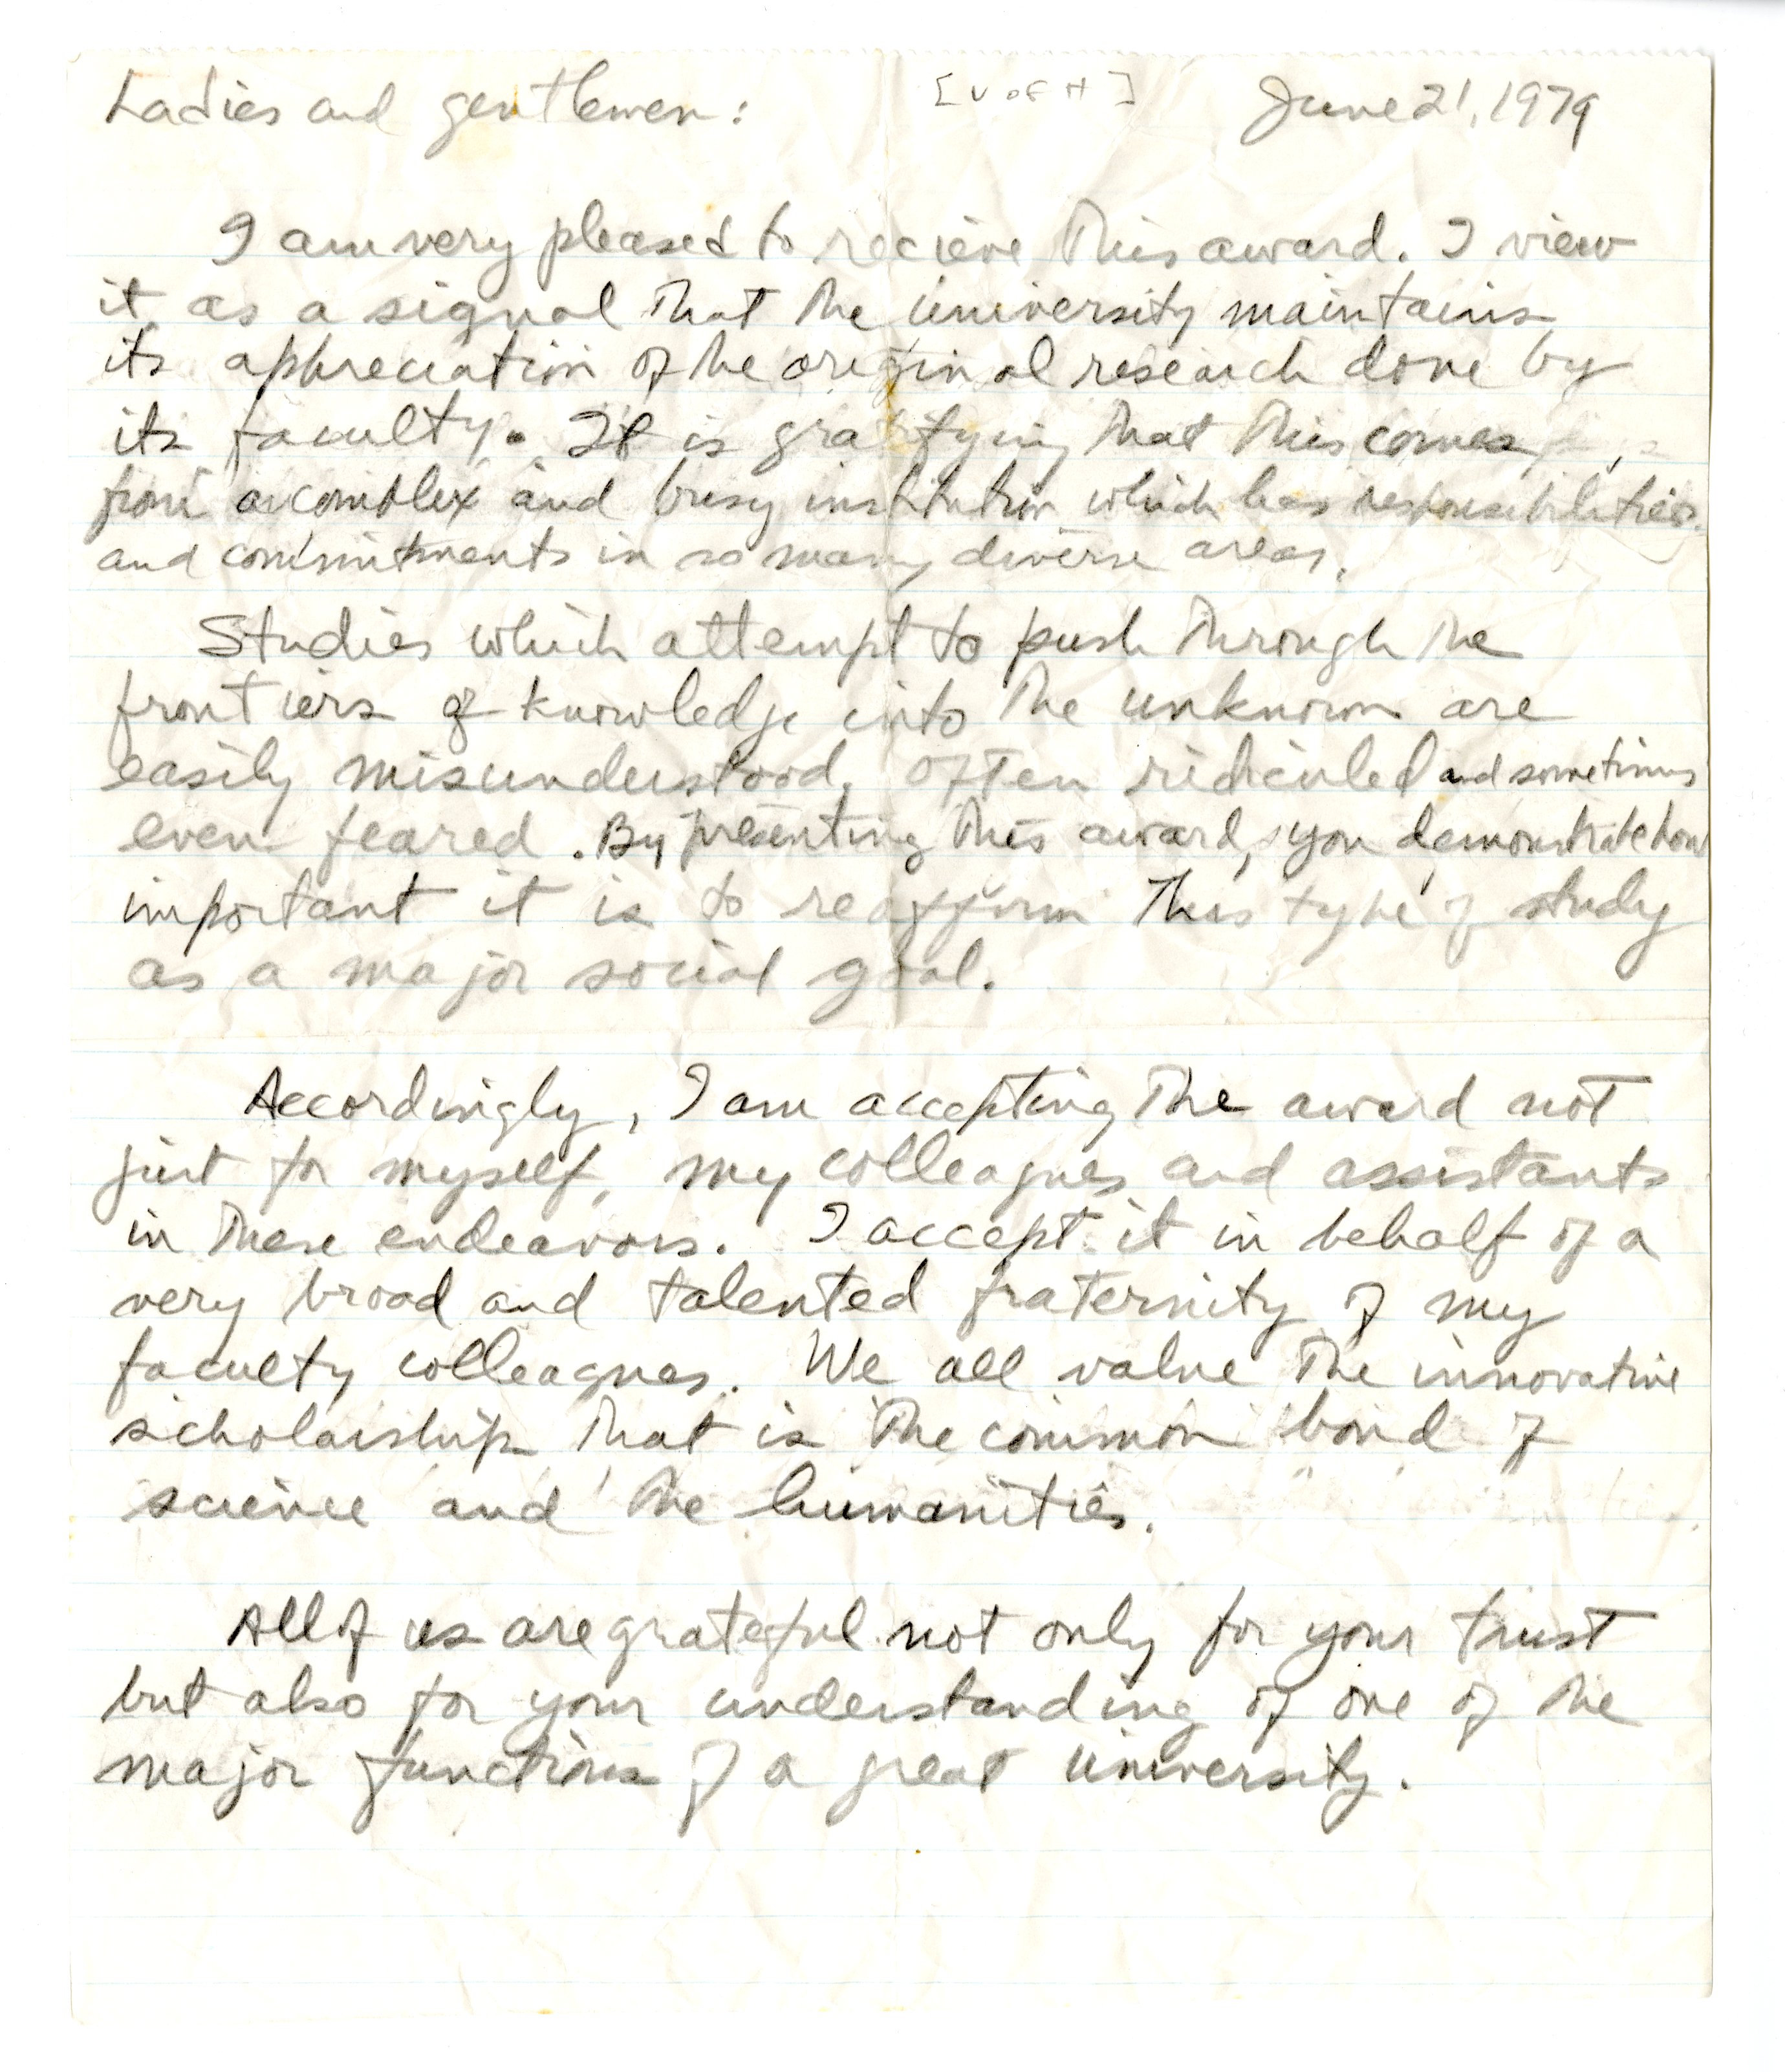 Ladies and gentlemen: [U OF H] June 21, 1979
I am very pleased to recieve this award. I view
it as a signal that the university maintains
its appreciation of the original research done by
its faculty. It is gratifying that this comes
from a complex and busy institution which has responsibilities
and commitments in so many diverse areas.
Studies which attempt to push through the
frontiers of knowledge into the unknown are
easily misunderstood, often ridiculed and sometimes
even feared. By presenting this award, you demonstrate how
important it is to reaffirm this type of study
as a major social goal.
Accordingly, I am accepting the award not
just for myself, my colleagues and assistants
in these endeavors. I accept it in behalf of a
very broad and talented fraternity of my
faculty colleagues. We all value the innovative
scholarship that is the common bond of
science and the humanities.
All of us are grateful not only for your trust
but also for your understanding of one of the
major functions of a great university.